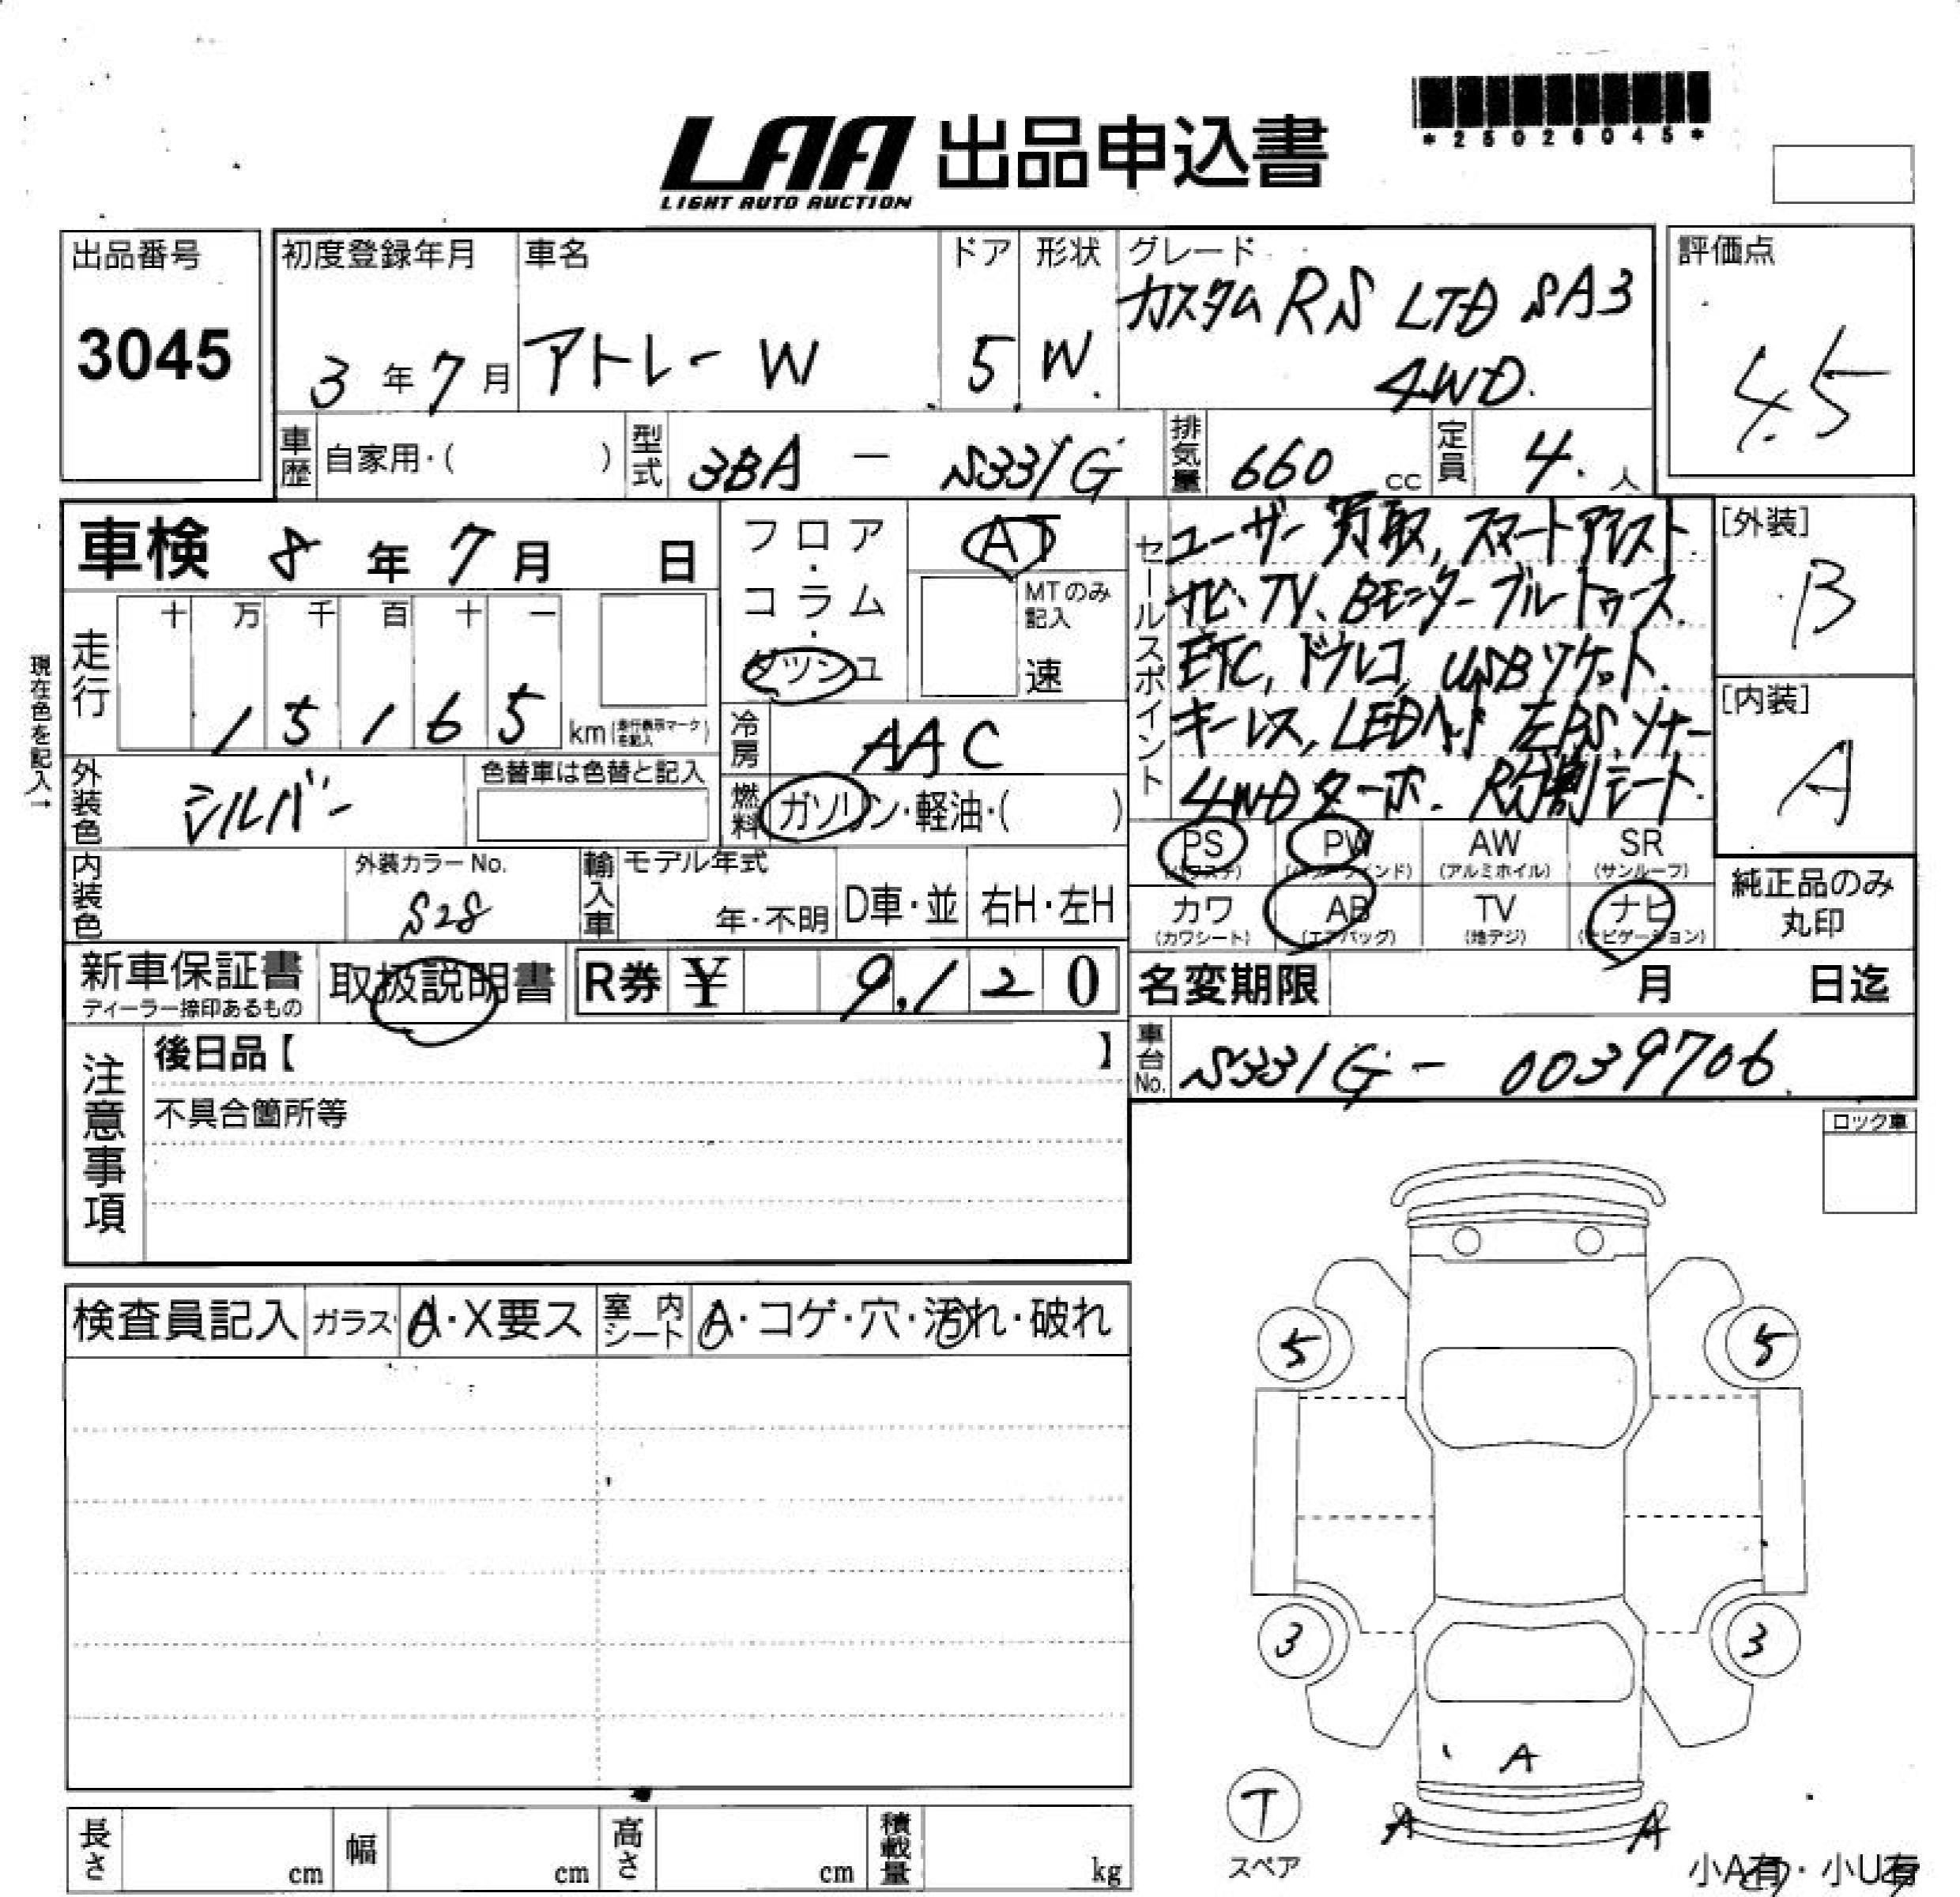 *25026045*
LAA 出品申込書
LIGHT AUTO AUCTION
出品番号
3045
初度登録年月
3 年 7 月
車名
アトレー W
ドア
5
形状
W.
グレード
カスタム RS LTD SA3
4WD.
評価点
4.5
車歴
自家用・( )
型式
3BA - S331G
排気量
660 cc
定員
4. 人
車検 8 年 7 月 日
走行
十 万 千 百 十 一
1 5 1 6 5 km
現在色を記入→
フロア・コラム・ダッシュ
AT
MTのみ記入
速
冷房
AAC
燃料
ガソリン・軽油・( )
セールスポイント
ユーザー買取, スマートアシスト
ナビ、TV、Bモニター ブルートゥース.
ETC, ドラレコ, USBソケット.
キーレス, LEDヘッド 左PS, ソナー
4WD ターボ. R分割シート.
[外装]
B
[内装]
A
外装色
シルバー
色替車は色替と記入
内装色
外装カラーNo.
S28
輸入車
モデル年式
年・不明
D車・並
右H・左H
PS AW SR
PW
(アルミホイル) (サンルーフ)
カワ AB TV ナビ
(カワシート) (エアバッグ) (地デジ) (ナビゲーション)
純正品のみ
丸印
新車保証書
ディーラー捺印あるもの
取扱説明書
R券 ¥ 9,120
名変期限 月 日迄
車台No.
S331G - 0039706
注意事項
後日品【 】
不具合箇所等
ロック車
検査員記入
ガラス
A・X要ス
室内シート
A・コゲ・穴・汚れ・破れ
5 5
3 3
A
T
スペア
A A
小A有・小U有
長さ cm
幅 cm
高さ cm
積載量 kg